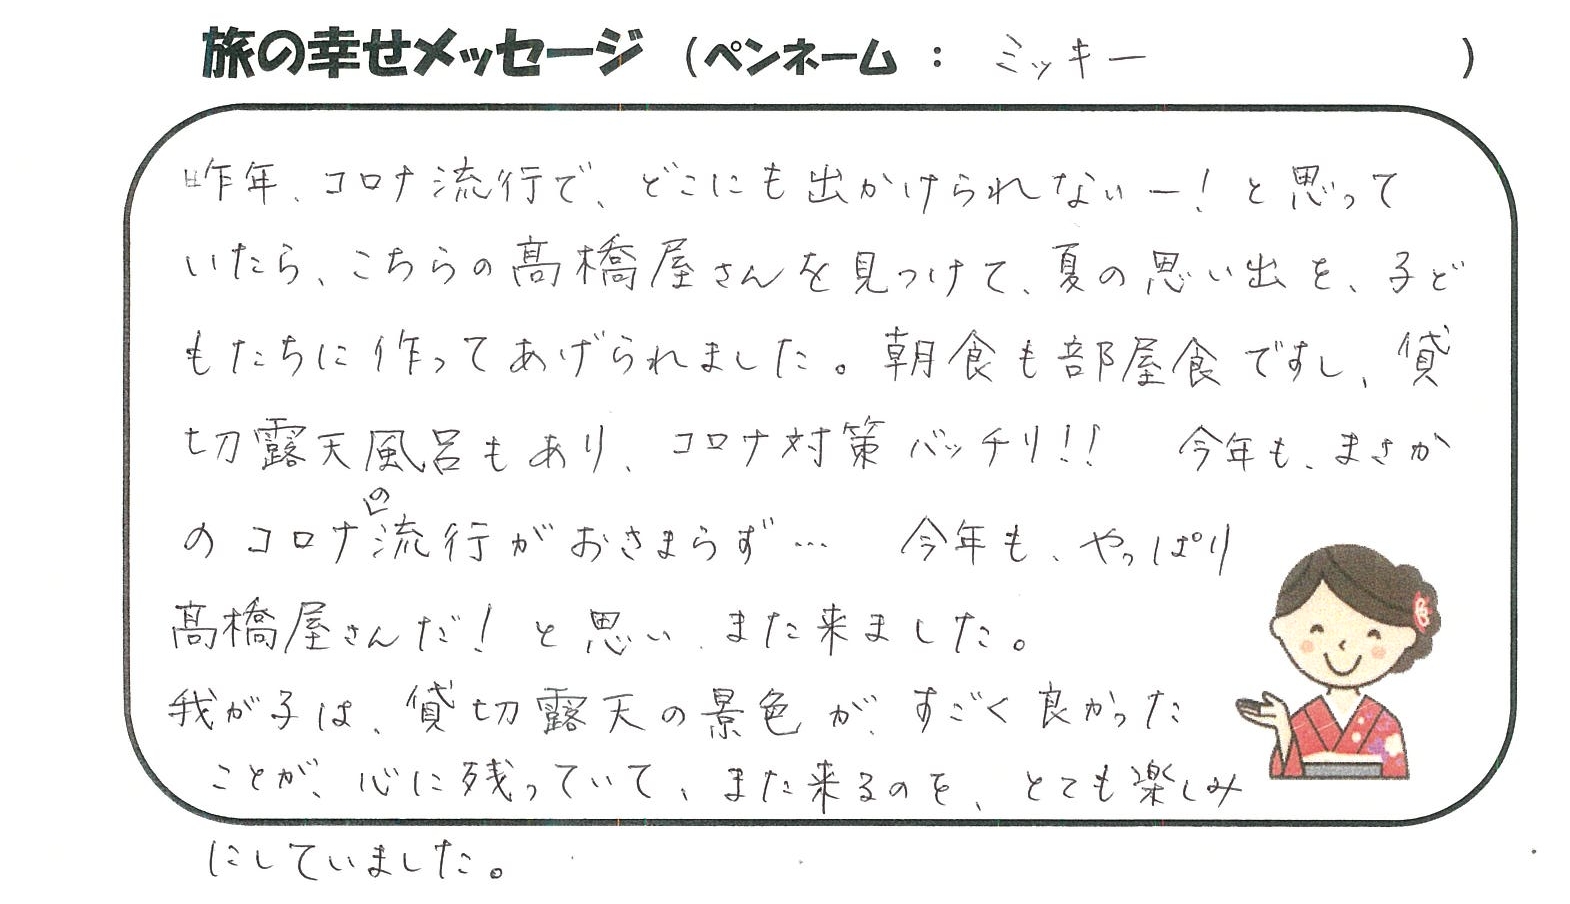 旅の幸せメッセージ (ペンネーム : ミッキー )
昨年、コロナ流行で、どこにも出かけられないー!と思って
いたら、こちらの髙橋屋さんを見つけて、夏の思い出を、子ど
もたちに作ってあげられました。朝食も部屋食ですし、貸
切露天風呂もあり、コロナ対策バッチリ!! 今年も、まさか
のコロナの流行がおさまらず… 今年も、やっぱり
髙橋屋さんだ!と思い、また来ました。
我が子は、貸切露天の景色が、すごく良かった
ことが、心に残っていて、また来るのを、とても楽しみ
にしていました。